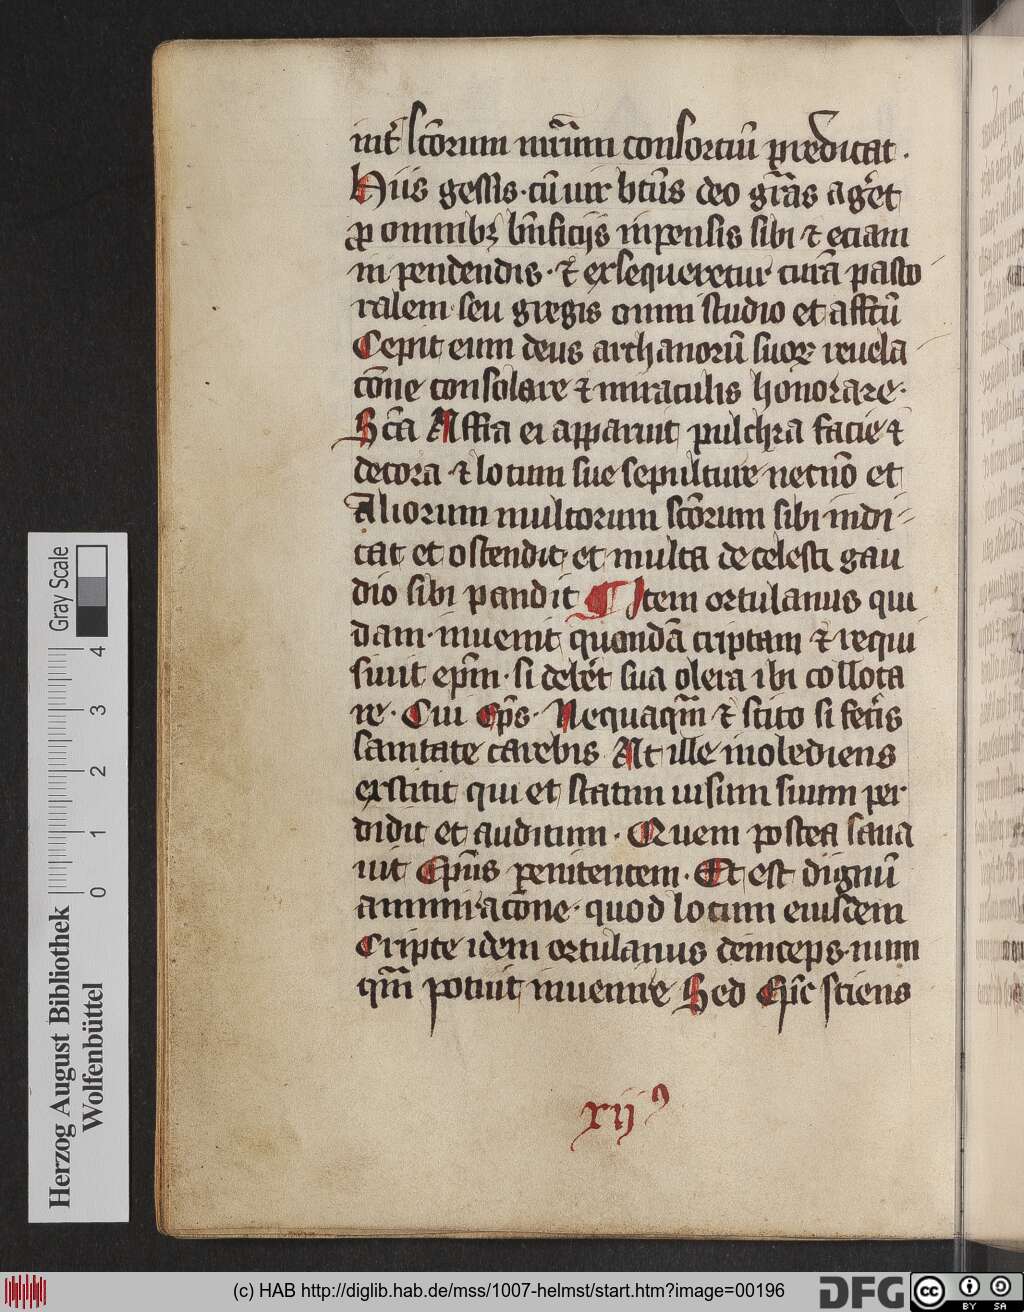 int̄ sc̄orum nūm̄ consorciū predicat .
Hiis gestis · cū vir bt̄us deo grās aḡet
ꝓ omnibꝫ bn̄ficijs inpensis sibi ⁊ eciam
in pendendis · ⁊ exsequeretur curā pasto
ralem seu gregis omni studio et aff̄tū
Cepit eum deus archanorū suoꝝ reuela
cōne consolare ⁊ miraculis honorare ·
Sc̄a Affra ei apparuit pulchra facie ⁊
decora · ⁊ locum sue sepulture necnō et
Aliorum multorum sc̄orum sibi indi⸗
cat et ostendit et multa de celesti gau
dio sibi pandit ¶ Item ortulanus qui
dam · inuenit quandā criptam ⁊ requi
siuit ep̄m · si deb̄et sua olera ibi colloca
re · Cui ep̄s · Nequaqm̄ ⁊ scito si fec̄is
sanitate carebis At ille inobediens
extitit qui et statim uisum suum per
didit et auditum · Quem postea sana
uit Ep̄us penitentem · Et est dignū
ammiracōne · quod locum eiusdem
Cripte idem ortulanus deinceps num
qm̄ potuit inuenire Sed Ep̄c sciens
xijꝰ
Gray Scale
4
3
2
1
0
Herzog August Bibliothek
Wolfenbüttel
(c) HAB http://diglib.hab.de/mss/1007-helmst/start.htm?image=00196
DFG
cc
BY SA